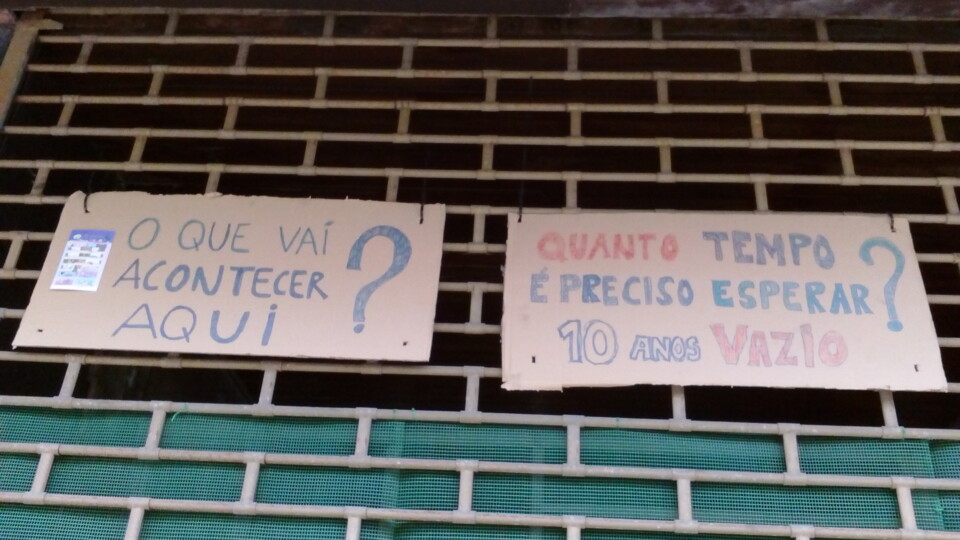 O QUE VAÍ
ACONTECER
AQUI ?
QUANTO TEMPO
É PRECISO ESPERAR ?
10 ANOS VAZIO